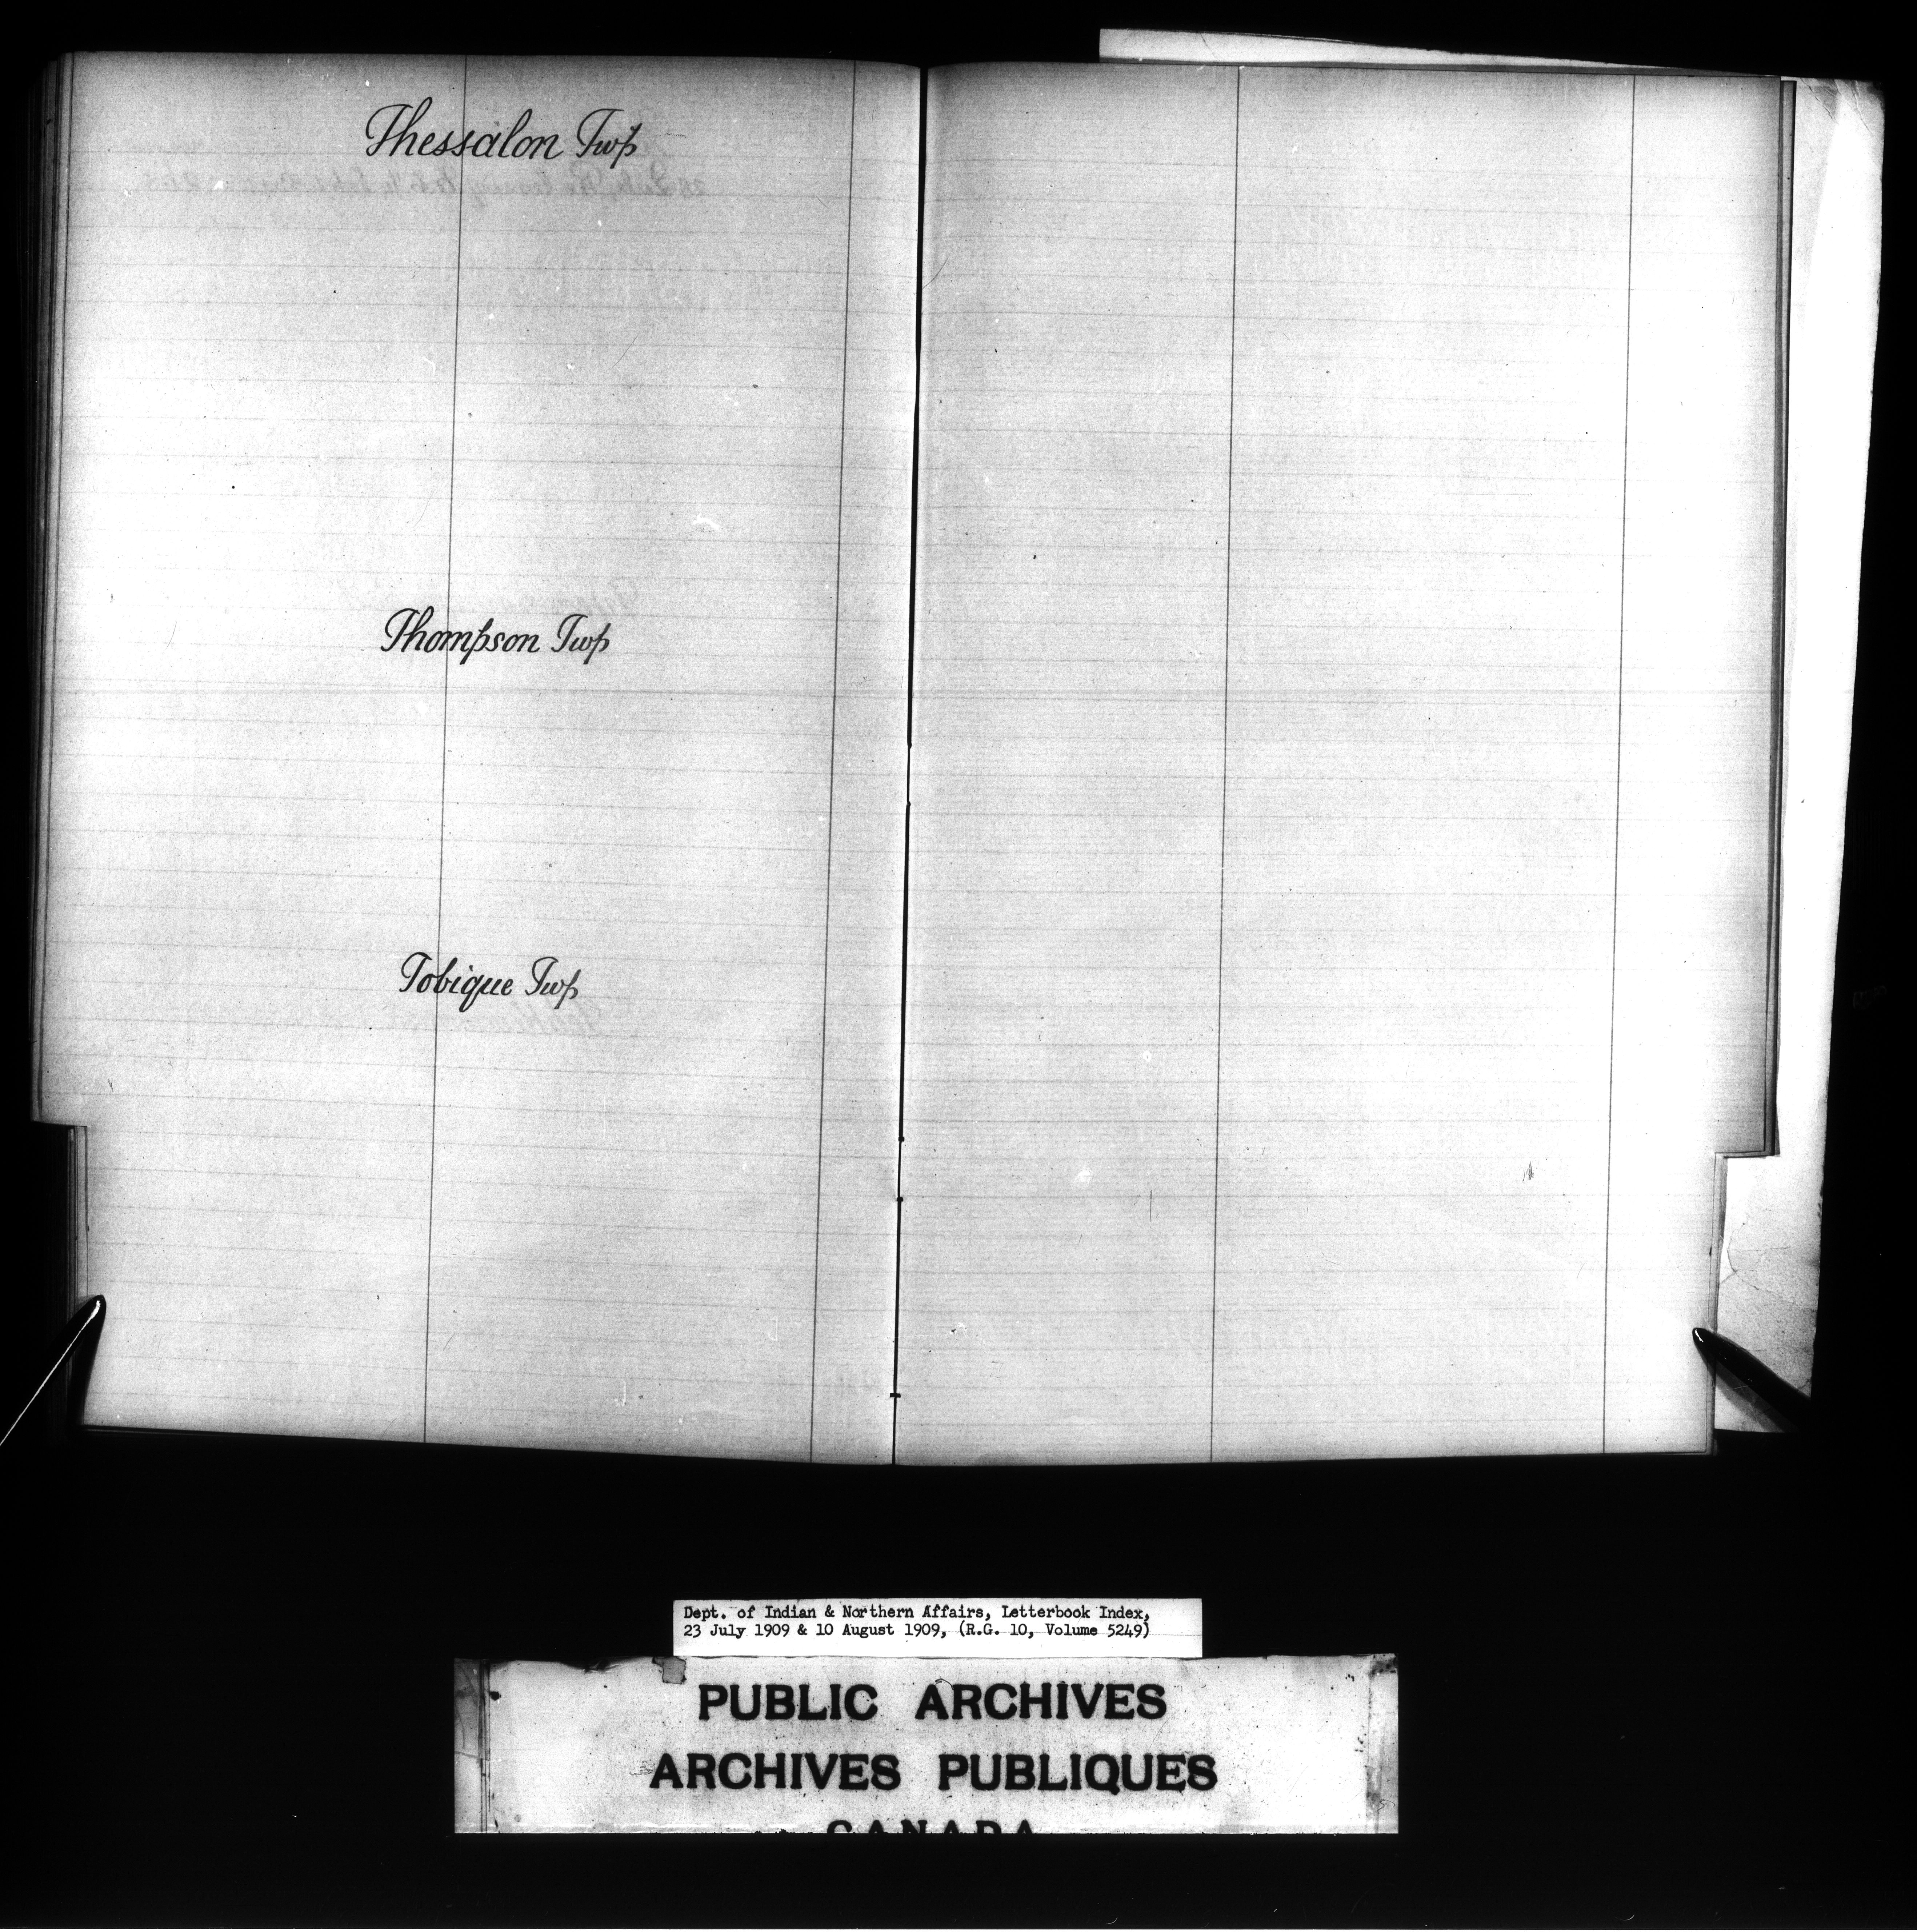 Thessalon Twp
Thompson Twp
Tobique Twp
Dept. of Indian & Northern Affairs, Letterbook Index,
23 July 1909 & 10 August 1909, (R.G. 10, Volume 5249)
PUBLIC ARCHIVES
ARCHIVES PUBLIQUES
CANADA